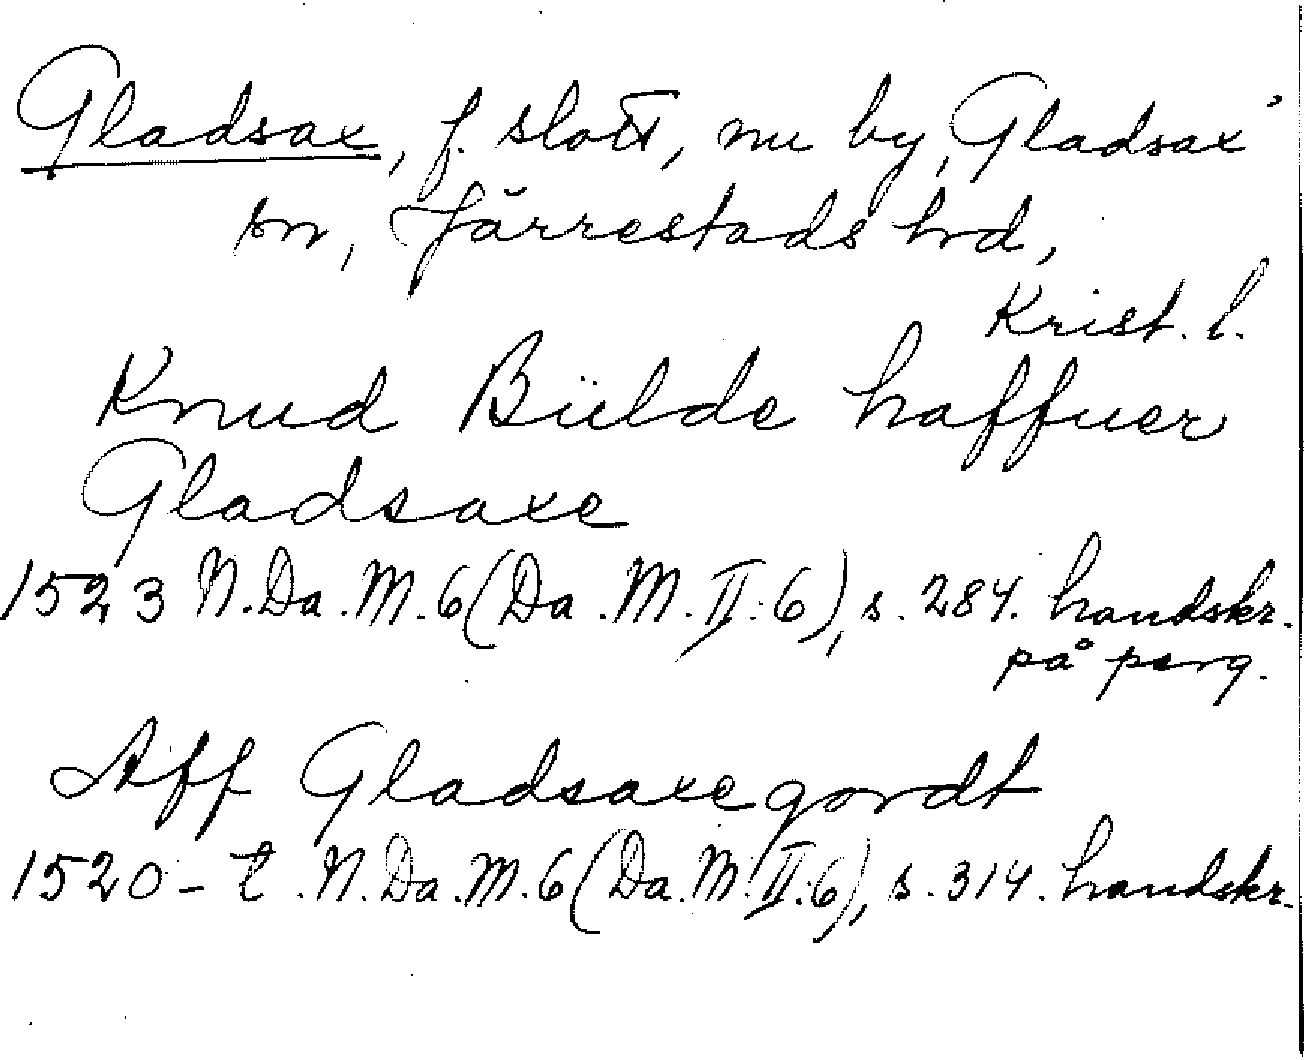 Gladsax, f. slott, nu by, Gladsax'
sn, Järrestads hrd,
Krist. l.
Knud Bülde haffuer
Gladsaxe
1523 N.Da.M.6(Da.M.II:6), s. 284. handskr.
på perg.
Aff Gladsaxegordt
1520-t. N.Da.M.6(Da.M.II:6), s. 314. handskr.